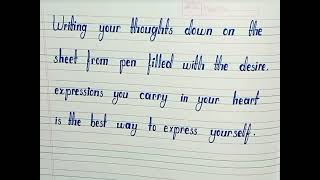 Writing your thoughts down on the
sheet from pen filled with the desire.
expressions you carry in your heart
is the best way to express yourself.